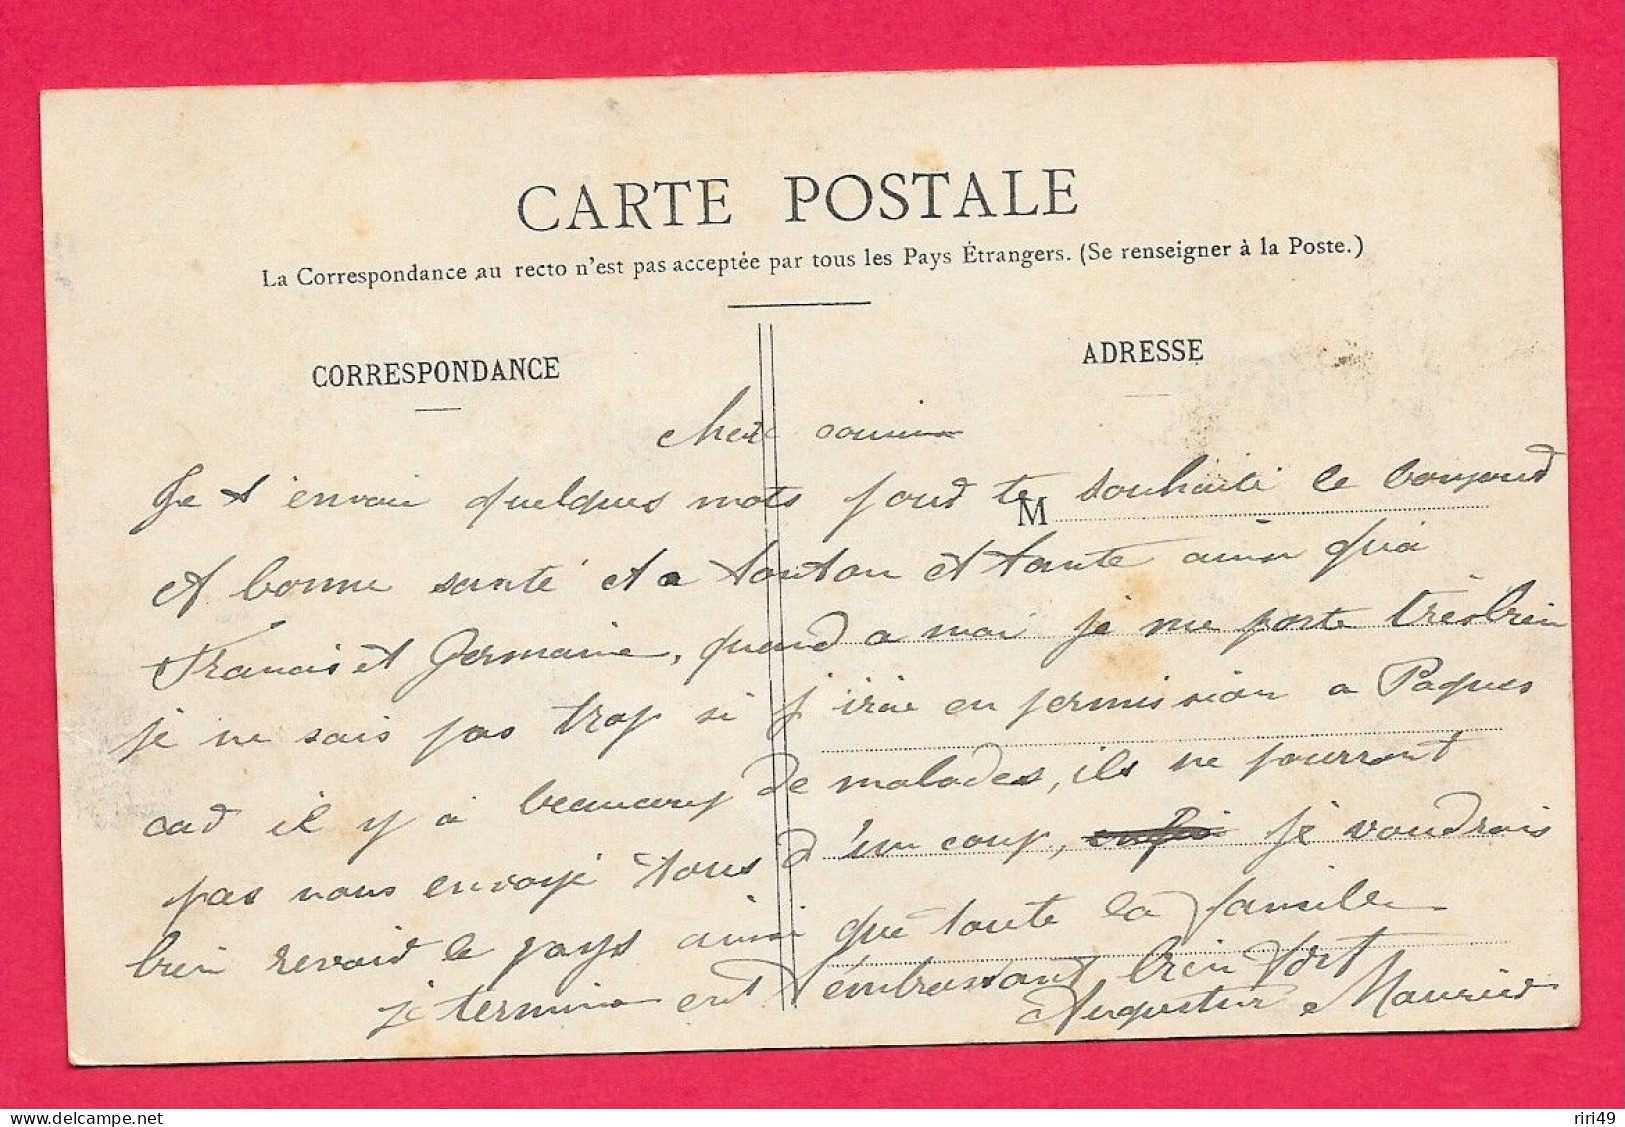 CARTE POSTALE
La Correspondance au recto n'est pas acceptée par tous les Pays Étrangers. (Se renseigner à la Poste.)
CORRESPONDANCE
ADRESSE
cher cousin
Je t'envoie quelques mots pour te souhaité le bonjour
M
et bonne santé et a tonton et tante ainsi qu'a
Francis et Germaine, quand a moi je me porte très bien
je ne sais pas trop si j'irai en permission a Paques
car il y à beaucoup de malades, ils ne pourront
pas nous envoyé tous d'un coup, je voudrais
bien revoir le pays ainsi que toute la famille
je termine en t'embrassant bien fort
Maurice
riri49
delcampe.net